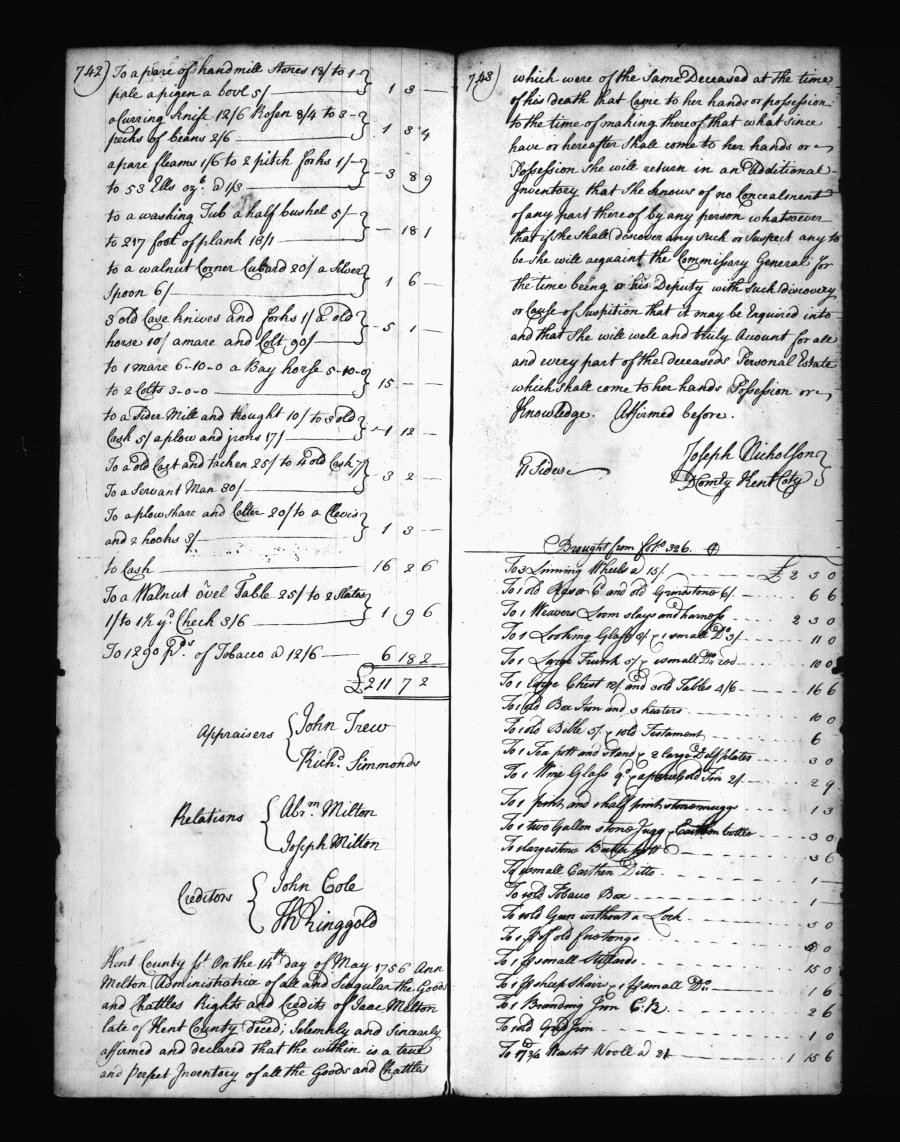 742) To a pare of handmill Stones 18/ to 1
pale a pigen a bowl 5/ 1 3 —
a Curring Knife 12/6 Rosen 8/4 to 3
pecks of beans 2/6 1 3 4
a pare fleams 1/6 to 2 pitch forks 1/
to 53 Ells ozb. @ 1/3 — 3 8 9
to a washing Tub a half bushel 5/
to 217 foot of plank 13/1 — 18 1
to a walnut Corner Cubard 20/ a Silver
Spoon 6/ 1 6 —
3 old Case knives and forks 1/ a old
horse 10/ a mare and Colt 90/ 5 1 —
to 1 mare 6-10-0 a Bay horse 5-10-0
to 2 Colts 3-0-0 15 — —
to a Sider Mill and trought 10/ to 3 old
Cask 5/ a plow and irons 17/ 1 12 —
To a old Cart and tacken 25/ to 4 old Cask 7/
To a Servant Man 30/ 3 2 —
To a plow share and Colter 20/ to a Clevis
and 2 hooks 3/ 1 3 —
to Cash 16 2 6
To a Walnut ovel Table 25/ to 2 Slates
1/ to 1½ yd. Check 3/6 1 9 6
To 1290 pds. of Tobacco @ 12/6 6 18 2
£211 7 2
Appraisers { John Trew
Richd. Simmonds
Relations { Abrm. Milton
Joseph Milton
Creditors { John Cole
Ths Ringgold
Kent County Sct. On the 14th day of May 1756 Ann
Melton Administratrix of all and Singular the Goods
and Chattles Rights and Credits of Isaac Melton
late of Kent County Deced; Solemnly and Sincearly
affirmed and declared that the within is a true
and Perfect Inventory of all the Goods and Chattles
743) which were of the Same Deceased at the time
of his death that Came to her hands or possession
to the time of making thereof that what since
have or hereafter Shall come to her hands or
Possession She will return in an Additional
Inventory that She knows of no Concealment
of any part thereof by any person whatsoever
that if she Shall discover any Such or Suspect any to
be She will acquaint the Commissary General for
the time being or his Deputy with Such discovery
or Cause of Suspition that it may be Enquired into
and that She will well and truly Account for all
and every part of the deceaseds Personal Estate
which Shall come to her hands Possession or
Knowledge. Affirmed before.
Joseph Nicholson
Domty Kent Coty
Brought from folo. 326.
To 3 Linning Wheels @ 15/. £ 2 5 0
To 1 old Rasor & and old Grindstone 6/. 6 6
To 1 Weavers Loom slays and harness 2 3 0
To 1 Looking Glass 8/ & 1 small Do. 3/ 11 0
To 1 Large Trunk & 1 small Do. 10 0
To 1 large Chest 12/ and 3 old Tables 4/6 16 6
To 1 old Box Iron and 3 heaters 10 0
To 1 old Bible 5/. & 1 old Testament 6
To 1 Tea pott and stand & 2 large Delf plates 3 0
To 1 Wine Glass 2 9
To 1 point and 1 half point stone muggs 1 3
To 1 two Gallon stone Jugg & Earthen bottle 3 0
To 1 large stone Butter pott 3 6
To 1 small Earthen Ditto 1
To 1 old Tobacco Box 1
To 1 old Gun without a Lock 5 0
To 1 pr of old fire tongs 5 0
To 1 pr small Stillards 15 0
To 1 pr sheep Shairs & 1 pr small Do. 1 6
To 1 Branding Iron E.B. 2 6
To 1 old 1 0
To 17¾ Washt Wooll @ 2/ 1 15 6